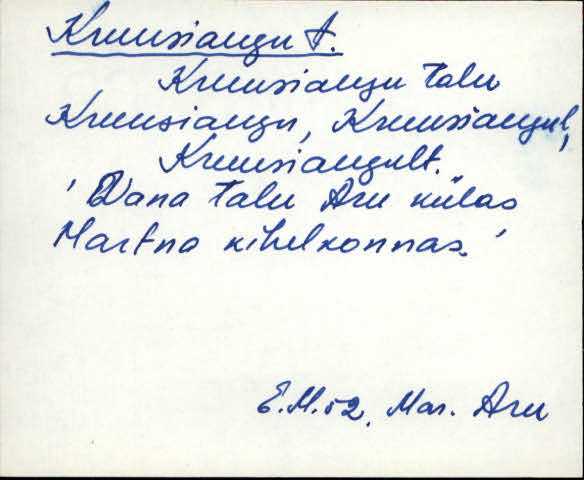 Kruusiaugu t.
Kruusiaugu talu
Kruusiaugu, Kruusiaugul,
Kruusiaugult.
'Vana talu Aru külas
Martna kihelkonnas.'
E.M.52. Mar. Aru